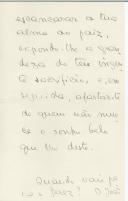 escancarar a tua
alma ao país,
expondo-lhe a gran
deza do teu ingen
te sacrifício, e, em
seguida, afastar-te
de quem não sou
be o sonho belo
que lhe deste.
Quando vais pa
ra Paris? O José